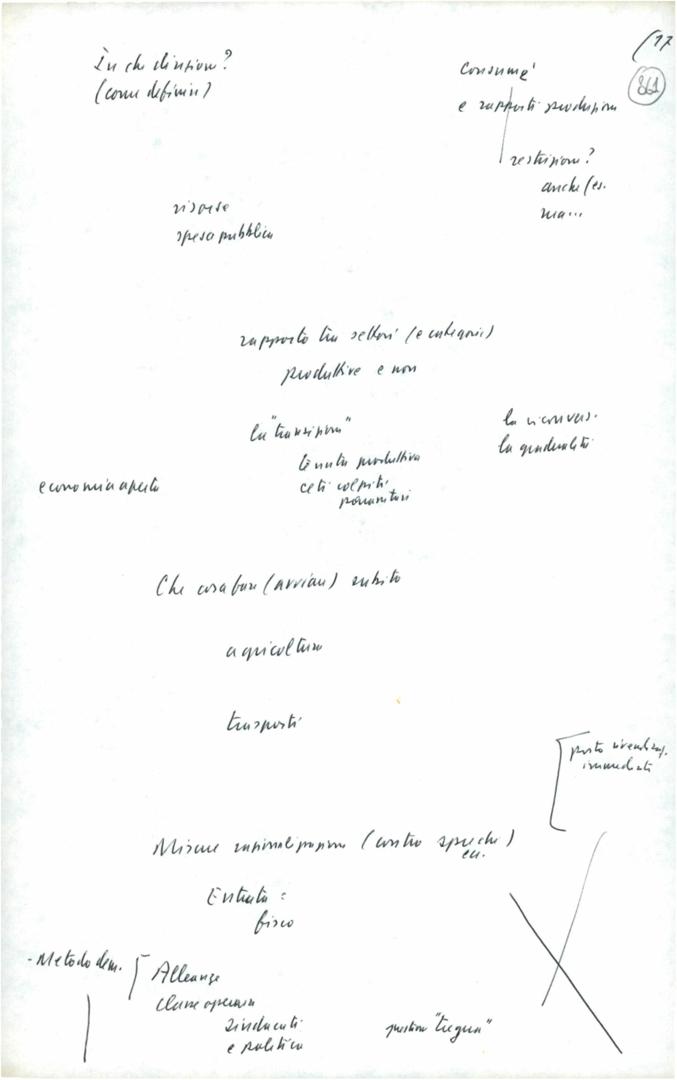 (17
861
In che direzione?
(come definire)
Consumé
e rapporti produzione
restrizione?
anche (es.
ma...
risorse
spesa pubblica
rapporto tra settori (e categorie)
produttive e non
la "transizione"
la riconvers.
la gradualità
tenuta produttiva
economia aperta
ceti colpiti
parassitari
Che cosa fare (avviare) subito
agricoltura
trasporti
posto rivendicaz.
immediate
Misure razionalizzazione (contro sprechi)
ecc.
Entrata:
fisco
- Metodo dem.
Alleanze
classe operaia
sindacati
e politica
"tregua"